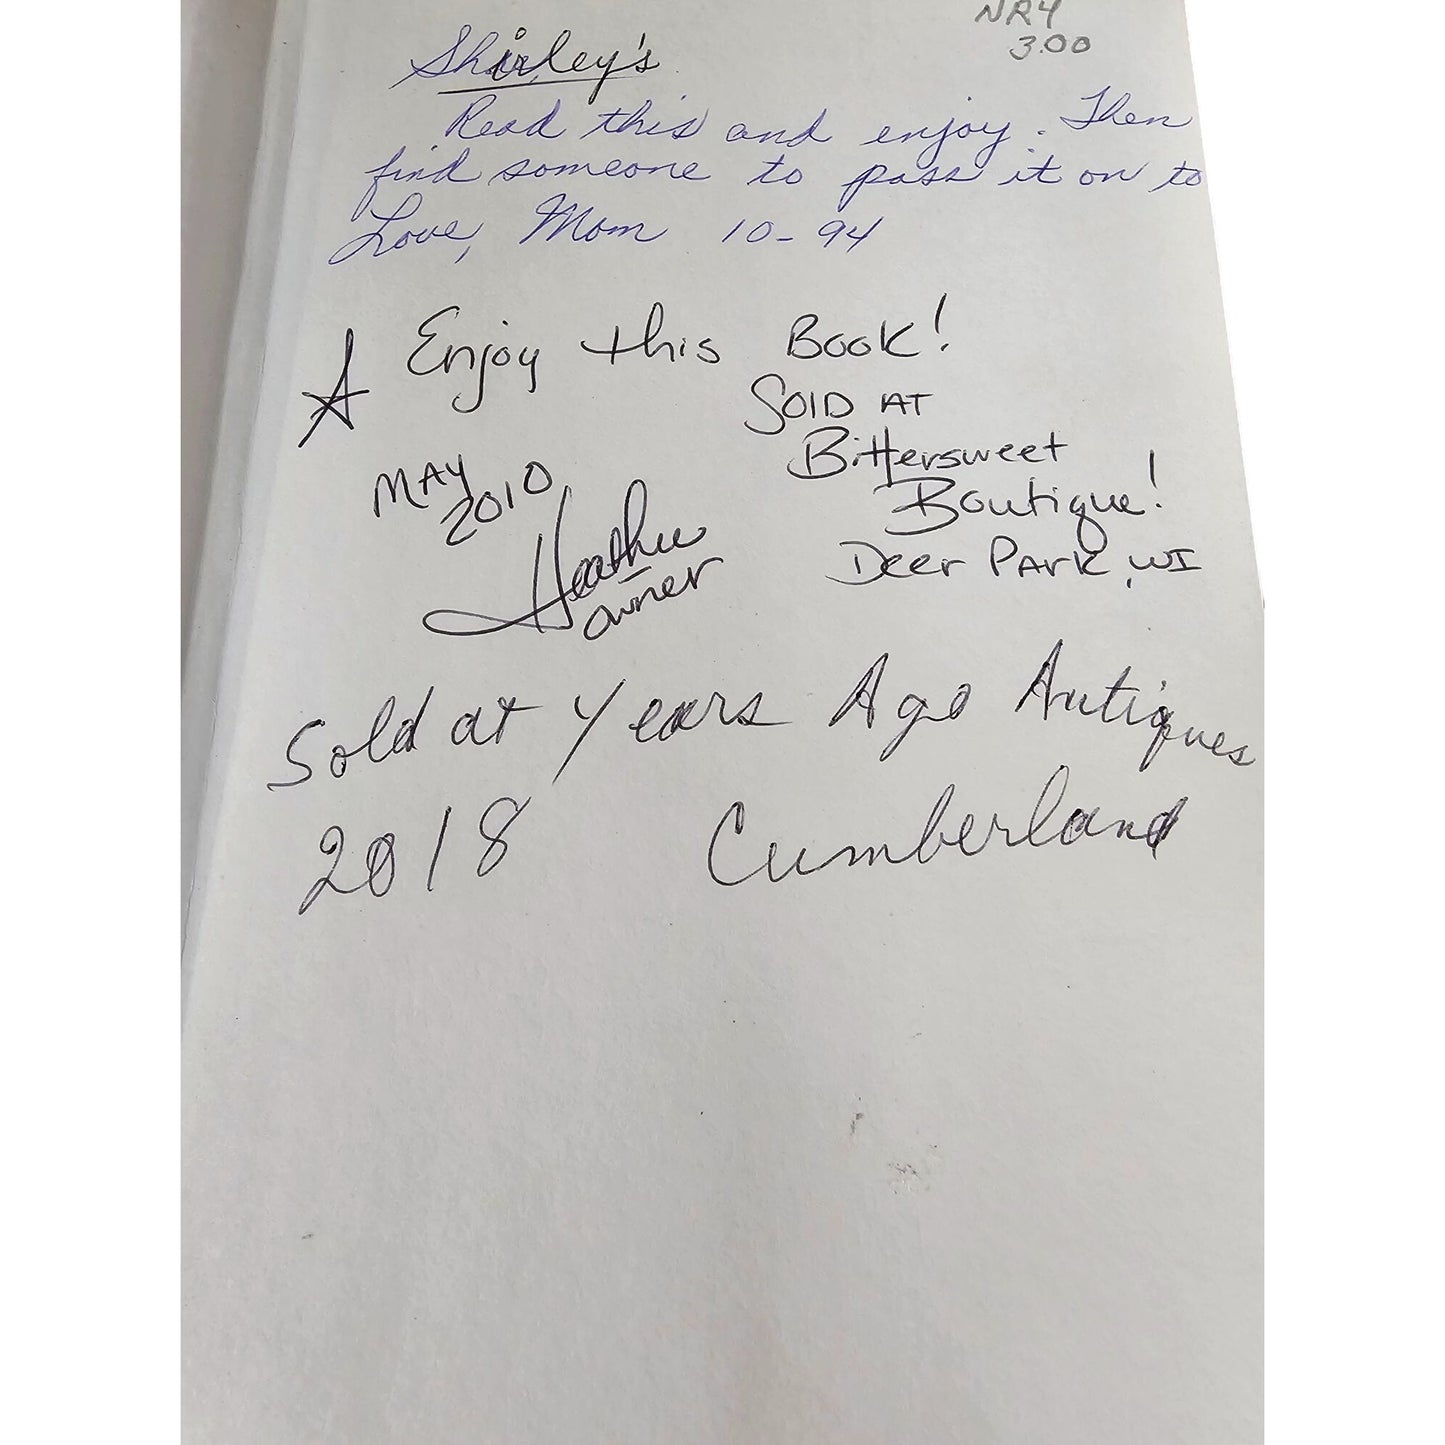 NR4
3.00
Shirley's
Read this and enjoy. Then
find someone to pass it on to
Love, Mom 10-94
Enjoy this Book!
Sold at
Bittersweet
Boutique!
Deer Park, WI
May
2010
Heather
owner
Sold at Years Ago Antiques
2018 Cumberland